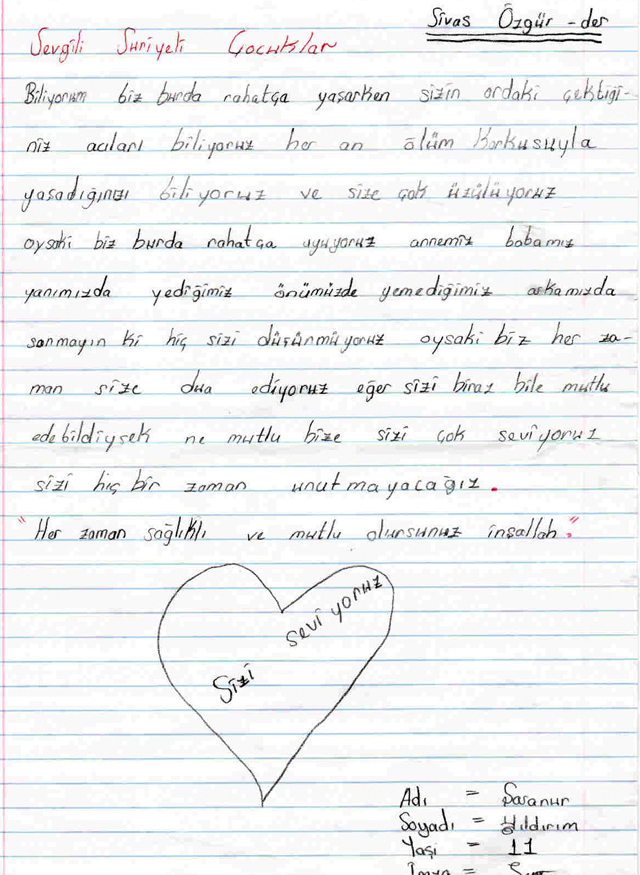 Sivas Özgür-der
Sevgili Suriyeli Çocuklar
Biliyorum biz burda rahatça yaşarken sizin ordaki çektiği-
niz acıları biliyoruz her an ölüm korkusuyla
yaşadığınızı biliyoruz ve size çok üzülüyoruz
oysaki biz burda rahatça uyuyoruz annemiz babamız
yanımızda yediğimiz önümüzde yemediğimiz arkamızda
sanmayın ki hiç sizi düşünmüyoruz oysaki biz her za-
man size dua ediyoruz eğer sizi biraz bile mutlu
edebildiysek ne mutlu bize sizi çok seviyoruz
sizi hiç bir zaman unutmayacağız.
"Her zaman sağlıklı ve mutlu olursunuz inşallah."
seviyoruz
Sizi
Adı =
Soyadı = Yıldırım
Yaşi = 11